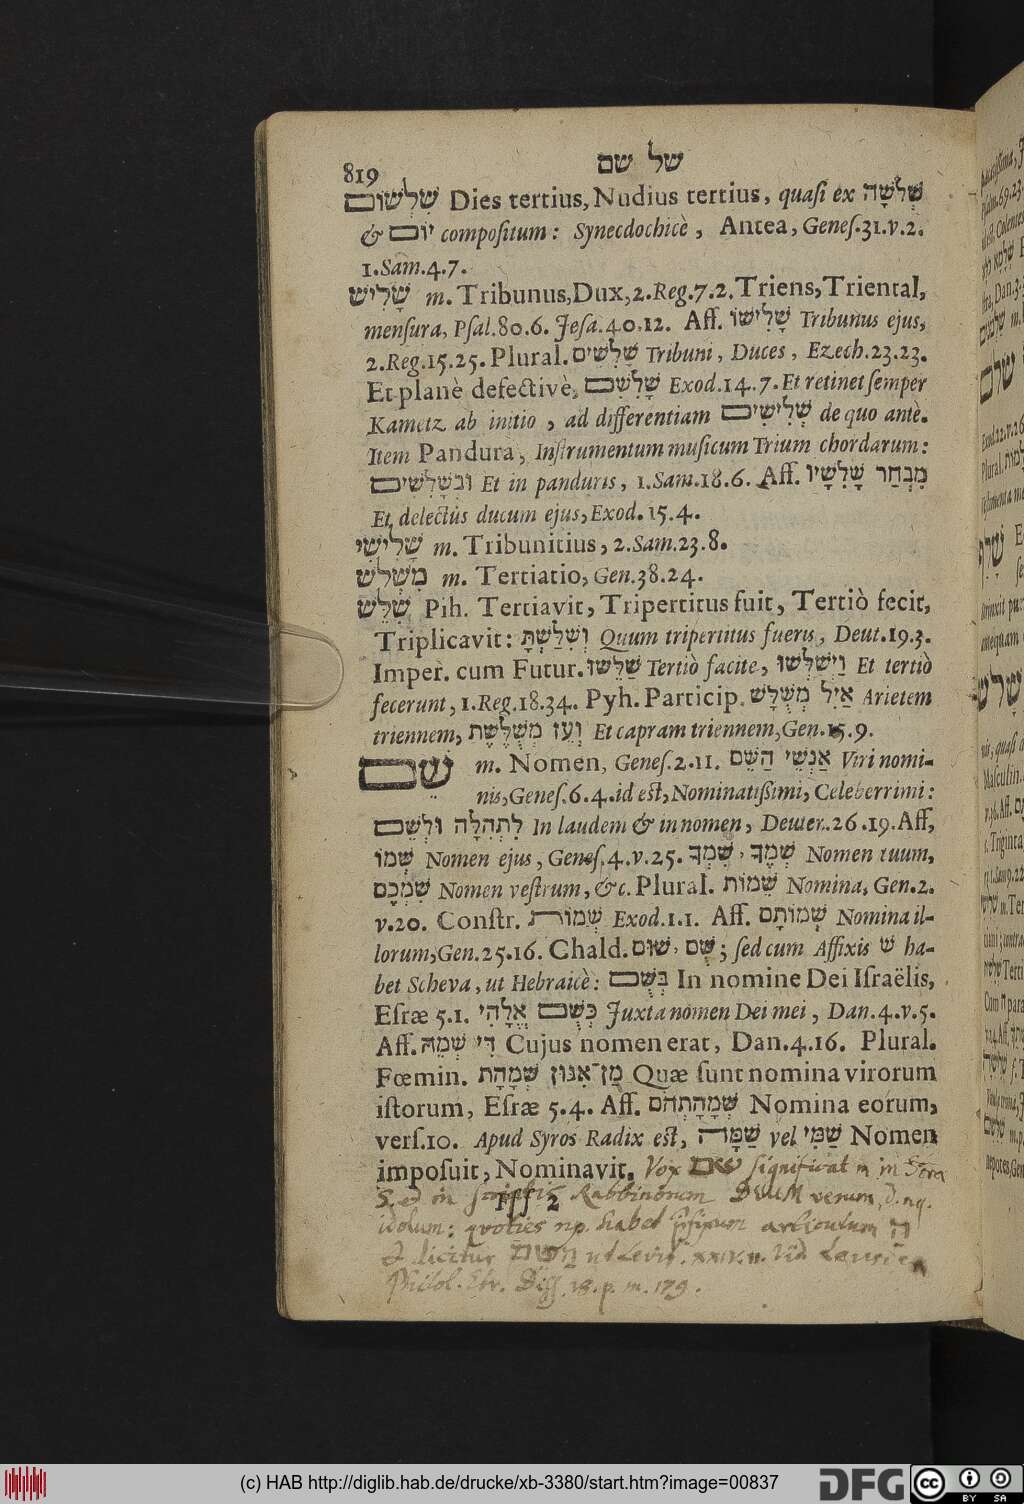 819 של שם
שִׁלְשׁוֹם Dies tertius, Nudius tertius, quaſi ex שְׁלֹשָׁה
& יוֹם compoſitum: Synecdochicè, Antea, Geneſ.31.v.2.
1.Sam.4.7.
שָׁלִישׁ m. Tribunus, Dux, 2.Reg.7.2. Triens, Triental,
menſura, Pſal.80.6. Jeſa.40.12. Aff. שָׁלִישׁוֹ Tribunus ejus,
2.Reg.15.25. Plural. שָׁלִשִׁים Tribuni, Duces, Ezech.23.23.
Et planè defectivè, שָׁלִשִׁם Exod.14.7. Et retinet ſemper
Kametz ab initio, ad differentiam שְׁלִישִׁים de quo antè.
Item Pandura, Inſtrumentum muſicum Trium chordarum:
וּבְשָׁלִשִׁים Et in panduris, 1.Sam.18.6. Aff. מִבְחַר שָׁלִשָׁיו
Et delectûs ducum ejus, Exod.15.4.
שָׁלִישִׁי m. Tribunitius, 2.Sam.23.8.
מִשְׁלֹשׁ m. Tertiatio, Gen.38.24.
שִׁלֵּשׁ Pih. Tertiavit, Tripertitus fuit, Tertiò fecit,
Triplicavit: וְשִׁלַּשְׁתָּ Quum tripertitus fueris, Deut.19.3.
Imper. cum Futur. שַׁלֵּשׁוּ Tertiò facite, וַיְשַׁלֵּשׁוּ Et tertiò
fecerunt, 1.Reg.18.34. Pyh. Particip. אַיִל מְשֻׁלָּשׁ Arietem
triennem, וְעֵז מְשֻׁלֶּשֶׁת Et capram triennem, Gen.15.9.
שֵׁם m. Nomen, Geneſ.2.11. אַנְשֵׁי הַשֵּׁם Viri nomi-
nis, Geneſ.6.4. id eſt, Nominatiſſimi, Celeberrimi:
לִתְהִלָּה וּלְשֵׁם In laudem & in nomen, Deuter.26.19. Aff,
שְׁמוֹ Nomen ejus, Geneſ.4.v.25. שְׁמֶךָ, שִׁמְךָ Nomen tuum,
שִׁמְכֶם Nomen veſtrum, &c. Plural. שֵׁמוֹת Nomina, Gen.2.
v.20. Conſtr. שְׁמוֹת Exod.1.1. Aff. שְׁמוֹתָם Nomina il-
lorum, Gen.25.16. Chald. שֻׁם, שׁוּם; ſed cum Affixis שׁ ha-
bet Scheva, ut Hebraicè: בְּשֻׁם In nomine Dei Iſraëlis,
Eſræ 5.1. כְּשֻׁם אֱלָהִי Juxta nomen Dei mei, Dan.4.v.5.
Aff. דִּי שְׁמֵהּ Cujus nomen erat, Dan.4.16. Plural.
Fœmin. מַן־אִנּוּן שְׁמָהָת Quæ ſunt nomina virorum
iſtorum, Eſræ 5.4. Aff. שְׁמָהָתְהֹם Nomina eorum,
verſ.10. Apud Syros Radix eſt, שַׁמָּה vel שַׁמִּי Nomen
impoſuit, Nominavit. Vox שם significat n in
Sed in scriptis Rabbinorum Deum verum,
Fff 2
idolum: quoties np. habet articulum ה
& dicitur השם ut Levit. XXIV.11. Vid Leusden
Philol. Ebr. Diss. 18. p. m. 179.
(c) HAB http://diglib.hab.de/drucke/xb-3380/start.htm?image=00837
DFG
cc BY SA